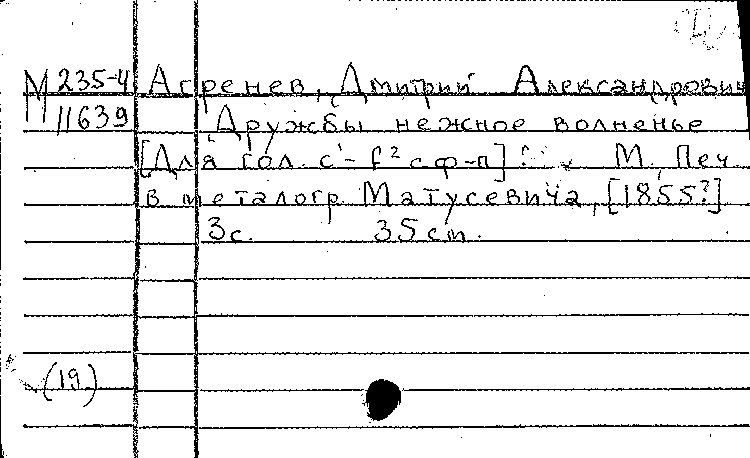 М 235-4 Агренев, Дмитрий Александрович
11639 Дружбы нежное волненье
[Для гол. c¹-f² с ф-п] М., Печ.
в металогр. Матусевича, [1855?]
3с. 35 cm.
(19)